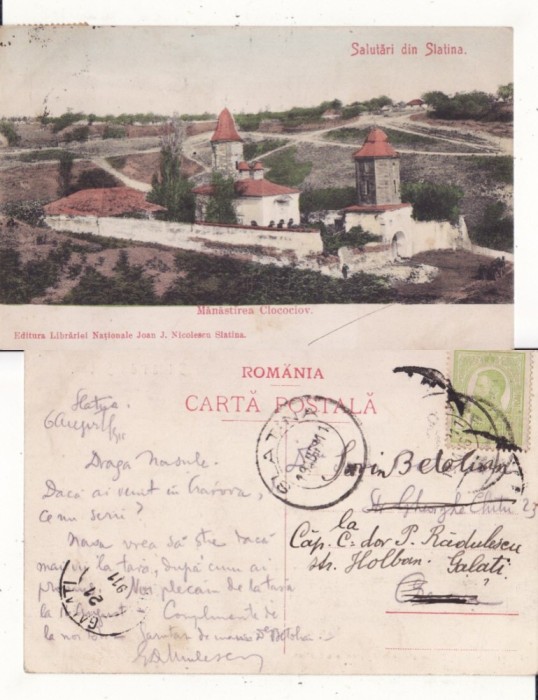 Salutări din Slatina.
Mănăstirea Clocociov.
Editura Librăriei Naționale Joan J. Nicolescu Slatina.
ROMÂNIA
CARTĂ POSTALĂ
Slatina.
Draga Nasule.
Dacă ai venit in Craiova,
ce nu scrii?
Nasa vrea să știe dacă
mai vii la tară, după cum ai
Noi plecăm de la tară
la Complimente de
la noi
SLATINA
Str. Gheorghe Chițu 23
la
Căp. C-dor P. Rădulescu
str. Holban. Galati.
GALATI
21
911